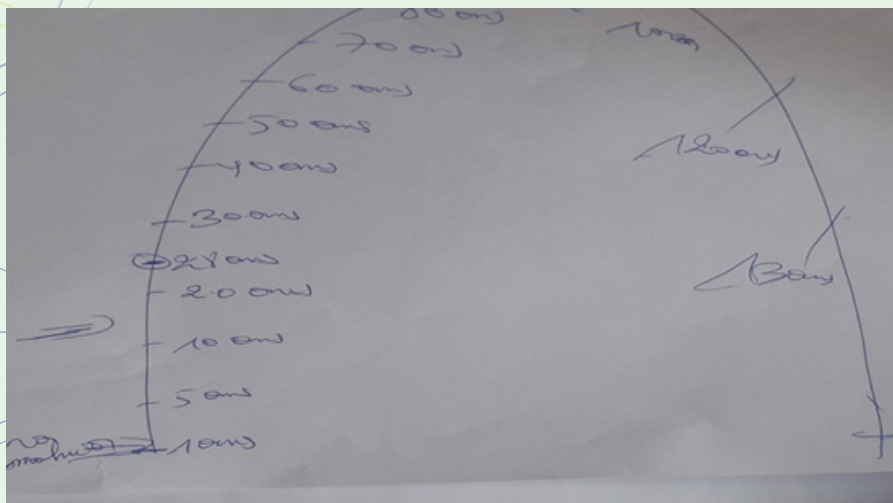 70 ans
60 ans
50 ans
40 ans
30 ans
28 ans
20 ans
10 ans
5 ans
1 ans
120 ans
130 ans